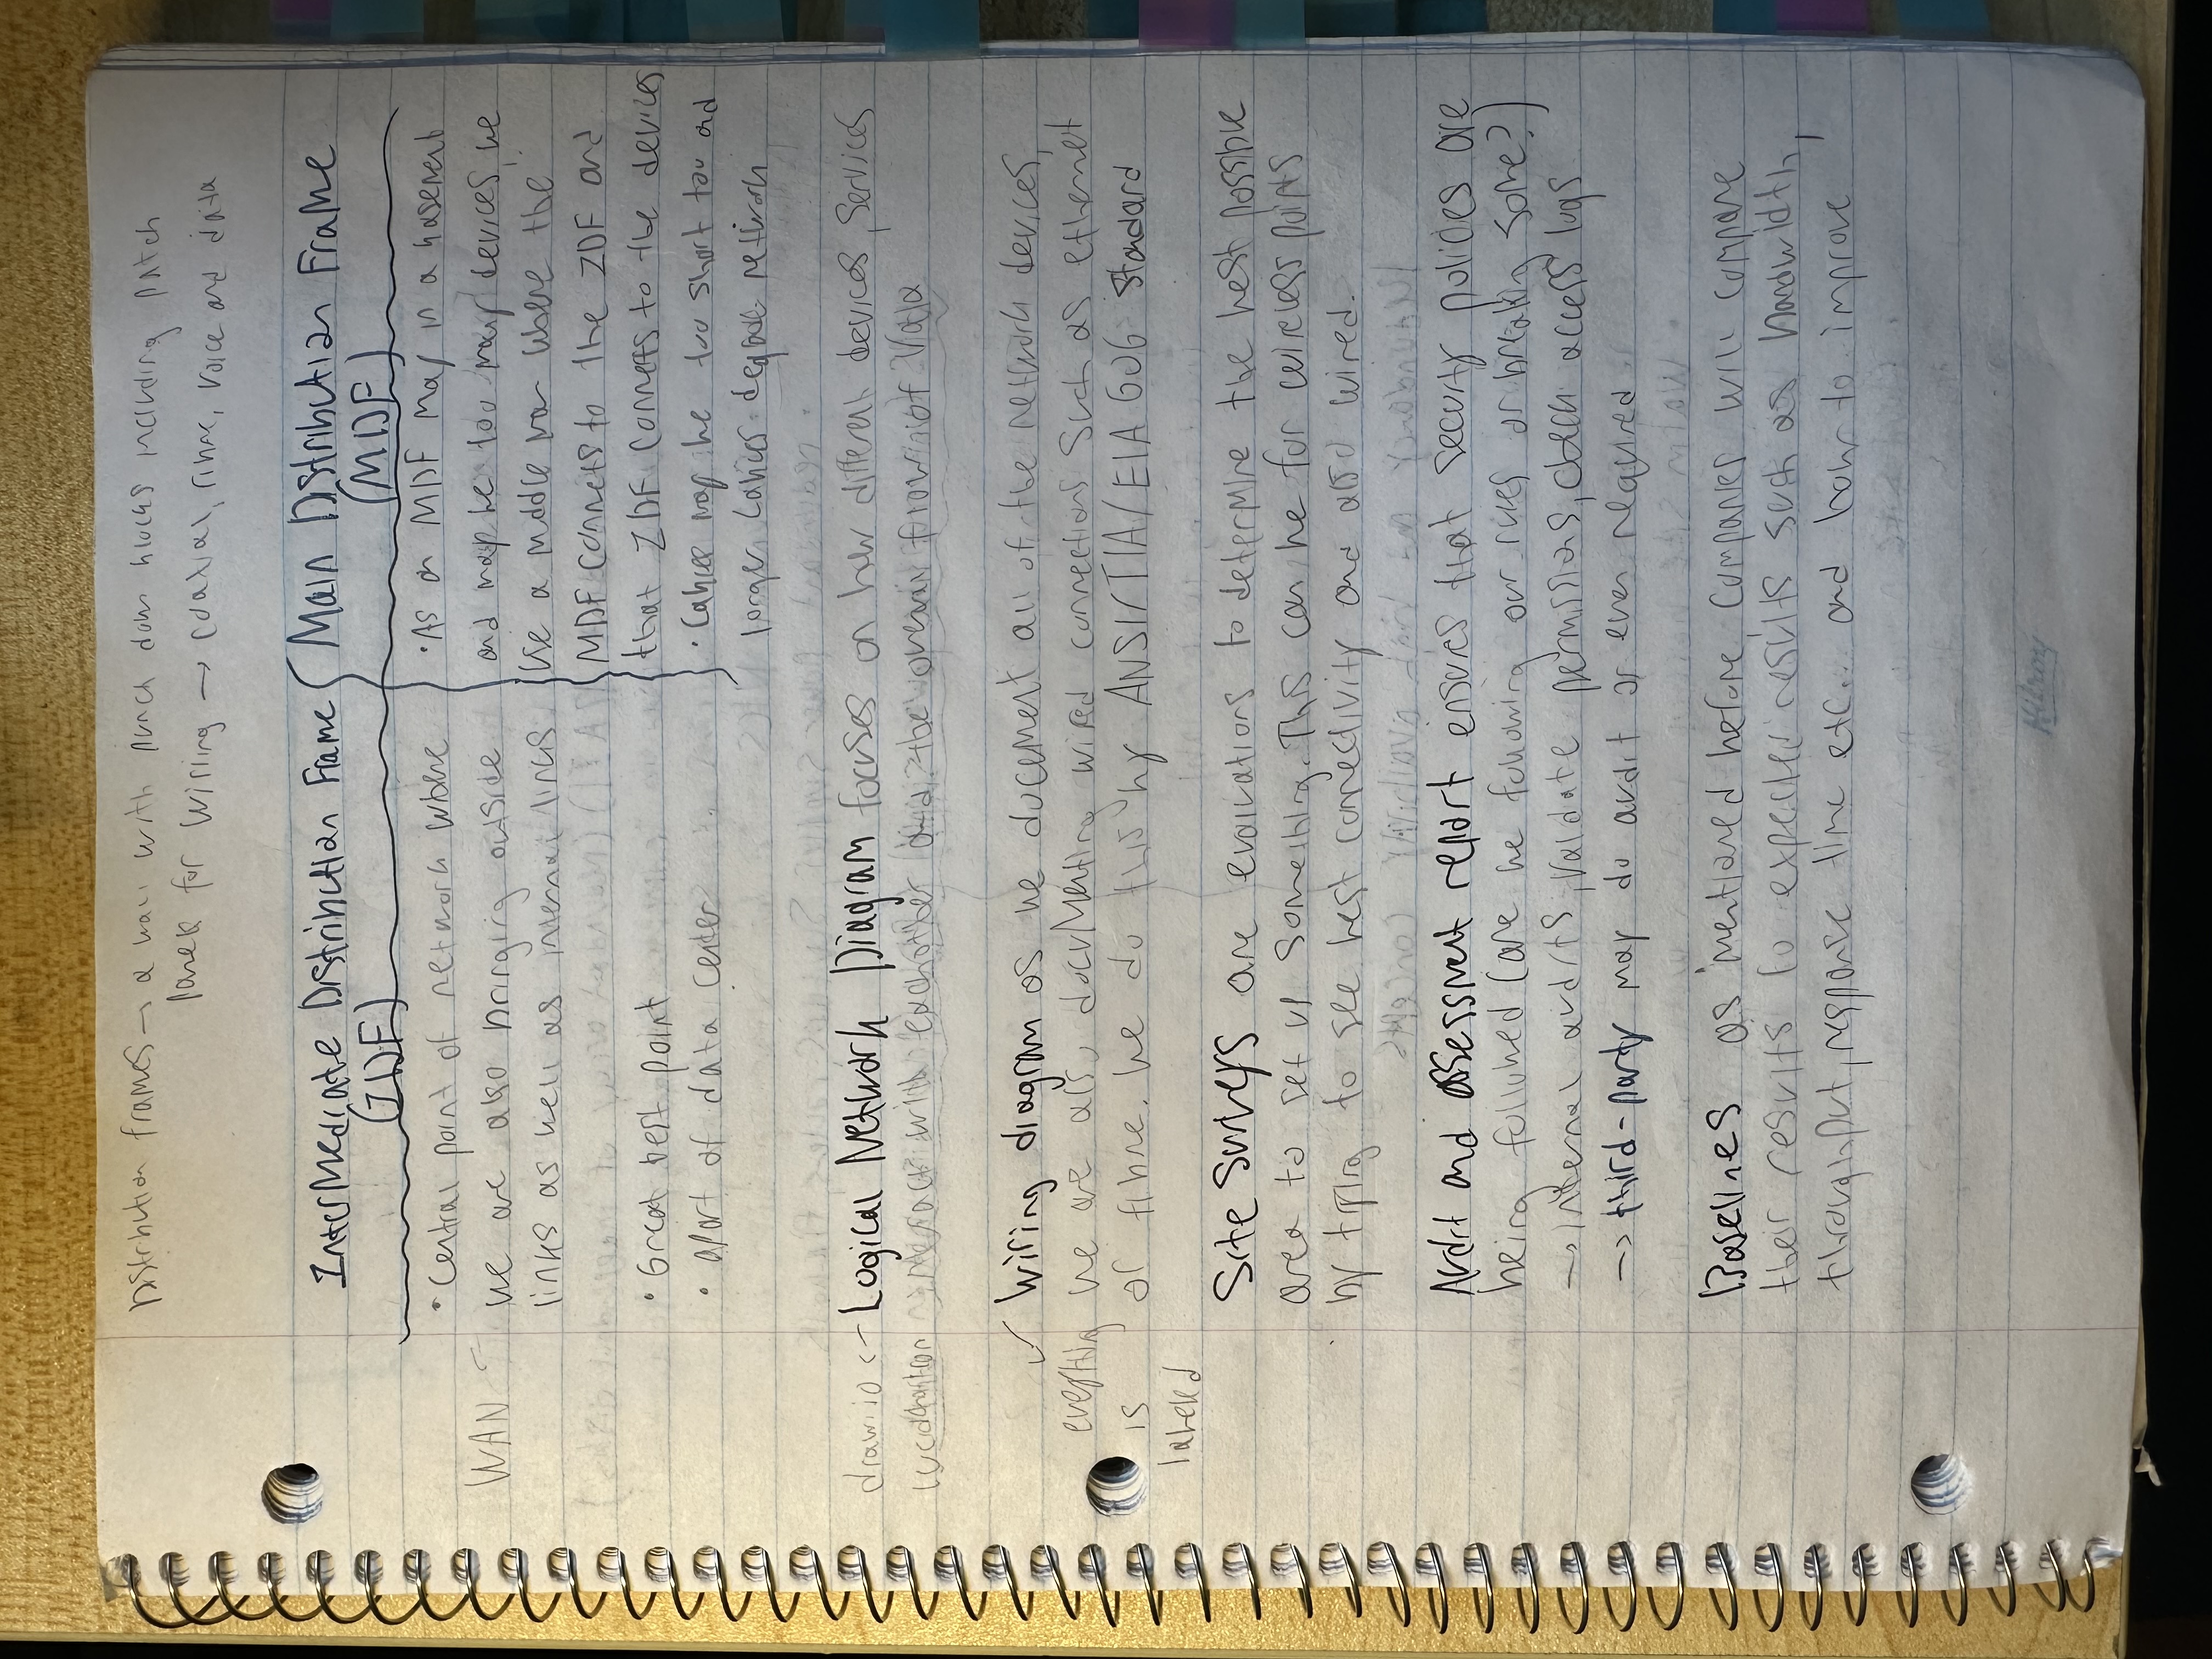 Distribution frames → a wall with punch down blocks including patch
panels for wiring → coaxial, fibre, voice and data
Intermediate Distribution Frame
(IDF)
• Central point of network where
WAN ←
we are also bringing outside
links as well as internal links
• Great test point
• apart of data center
Main Distribution Frame
(MDF)
• As an MDF may in a basement
and may be too many devices, we
use a middle man where the
MDF connects to the IDF and
that IDF connects to the devices
• Cables may be too short too and
longer cables degrade network
draw.io ← Logical Network Diagram focuses on how different devices, services
interact with eachother and the overall flow of data
✓ Wiring diagram as we document all of the network devices,
everything we are also documenting wired connections such as ethernet
is or fibre. We do this by ANSI/TIA/EIA 606 standard
labeled
Site Surveys are evaluations to determine the best possible
area to set up something. This can be for wireless points
by trying to see best connectivity and also wired.
Audit and assessment report ensures that security policies are
being followed (are we following our rules or breaking some?)
→ internal audits, validate permissions, check access logs
→ third-party may do audit or even required
Baselines as mentioned before, companies will compare
their results to expected results such as bandwidth,
throughput, response time etc... and how to improve
Hilroy